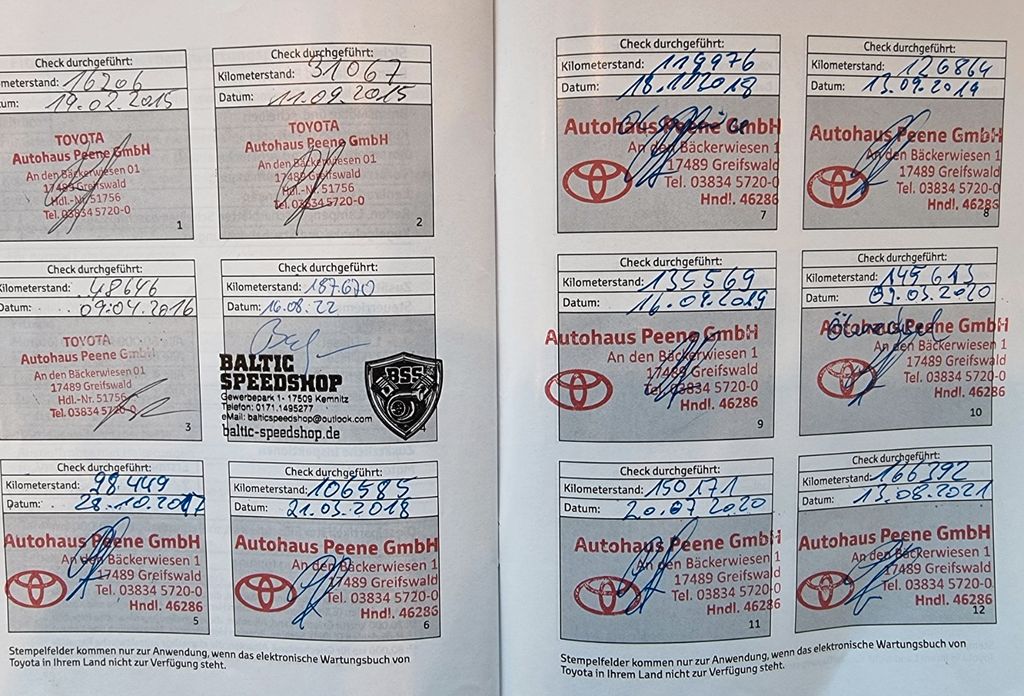 Check durchgeführt:
Kilometerstand: 16206
Datum: 19.02.2015
TOYOTA
Autohaus Peene GmbH
An den Bäckerwiesen 01
17489 Greifswald
Hdl.-Nr. 51756
Tel. 03834 5720-0
1
Check durchgeführt:
Kilometerstand: 31067
Datum: 11.09.2015
TOYOTA
Autohaus Peene GmbH
An den Bäckerwiesen 01
17489 Greifswald
Hdl.-Nr. 51756
Tel. 03834 5720-0
2
Check durchgeführt:
Kilometerstand: 48646
Datum: 09.04.2016
TOYOTA
Autohaus Peene GmbH
An den Bäckerwiesen 01
17489 Greifswald
Hdl.-Nr. 51756
Tel. 03834 5720-0
3
Check durchgeführt:
Kilometerstand: 187.670
Datum: 16.08.22
BALTIC
SPEEDSHOP
BSS
Gewerbepark 1 - 17509 Kemnitz
Telefon: 0171.1495277
eMail: balticspeedshop@outlook.com
baltic-speedshop.de
4
Check durchgeführt:
Kilometerstand: 98.449
Datum: 28.10.2017
Autohaus Peene GmbH
An den Bäckerwiesen 1
17489 Greifswald
Tel. 03834 5720-0
Hndl. 46286
5
Check durchgeführt:
Kilometerstand: 106585
Datum: 21.03.2018
Autohaus Peene GmbH
An den Bäckerwiesen 1
17489 Greifswald
Tel. 03834 5720-0
Hndl. 46286
6
Stempelfelder kommen nur zur Anwendung, wenn das elektronische Wartungsbuch von
Toyota in Ihrem Land nicht zur Verfügung steht.
Check durchgeführt:
Kilometerstand: 119976
Datum: 18.12.2018
Autohaus Peene GmbH
An den Bäckerwiesen 1
17489 Greifswald
Tel. 03834 5720-0
Hndl. 46286
7
Check durchgeführt:
Kilometerstand: 126864
Datum: 13.09.2019
Autohaus Peene GmbH
An den Bäckerwiesen 1
17489 Greifswald
Tel. 03834 5720-0
Hndl. 46286
8
Check durchgeführt:
Kilometerstand: 135569
Datum: 16.09.2019
Autohaus Peene GmbH
An den Bäckerwiesen 1
17489 Greifswald
Tel. 03834 5720-0
Hndl. 46286
9
Check durchgeführt:
Kilometerstand: 149.613
Datum: 09.03.2020
Autohaus Peene GmbH
An den Bäckerwiesen 1
17489 Greifswald
Tel. 03834 5720-0
Hndl. 46286
10
Check durchgeführt:
Kilometerstand: 150171
Datum: 20.07.2020
Autohaus Peene GmbH
An den Bäckerwiesen 1
17489 Greifswald
Tel. 03834 5720-0
Hndl. 46286
11
Check durchgeführt:
Kilometerstand: 166392
Datum: 13.08.2021
Autohaus Peene GmbH
An den Bäckerwiesen 1
17489 Greifswald
Tel. 03834 5720-0
Hndl. 46286
12
Stempelfelder kommen nur zur Anwendung, wenn das elektronische Wartungsbuch von
Toyota in Ihrem Land nicht zur Verfügung steht.